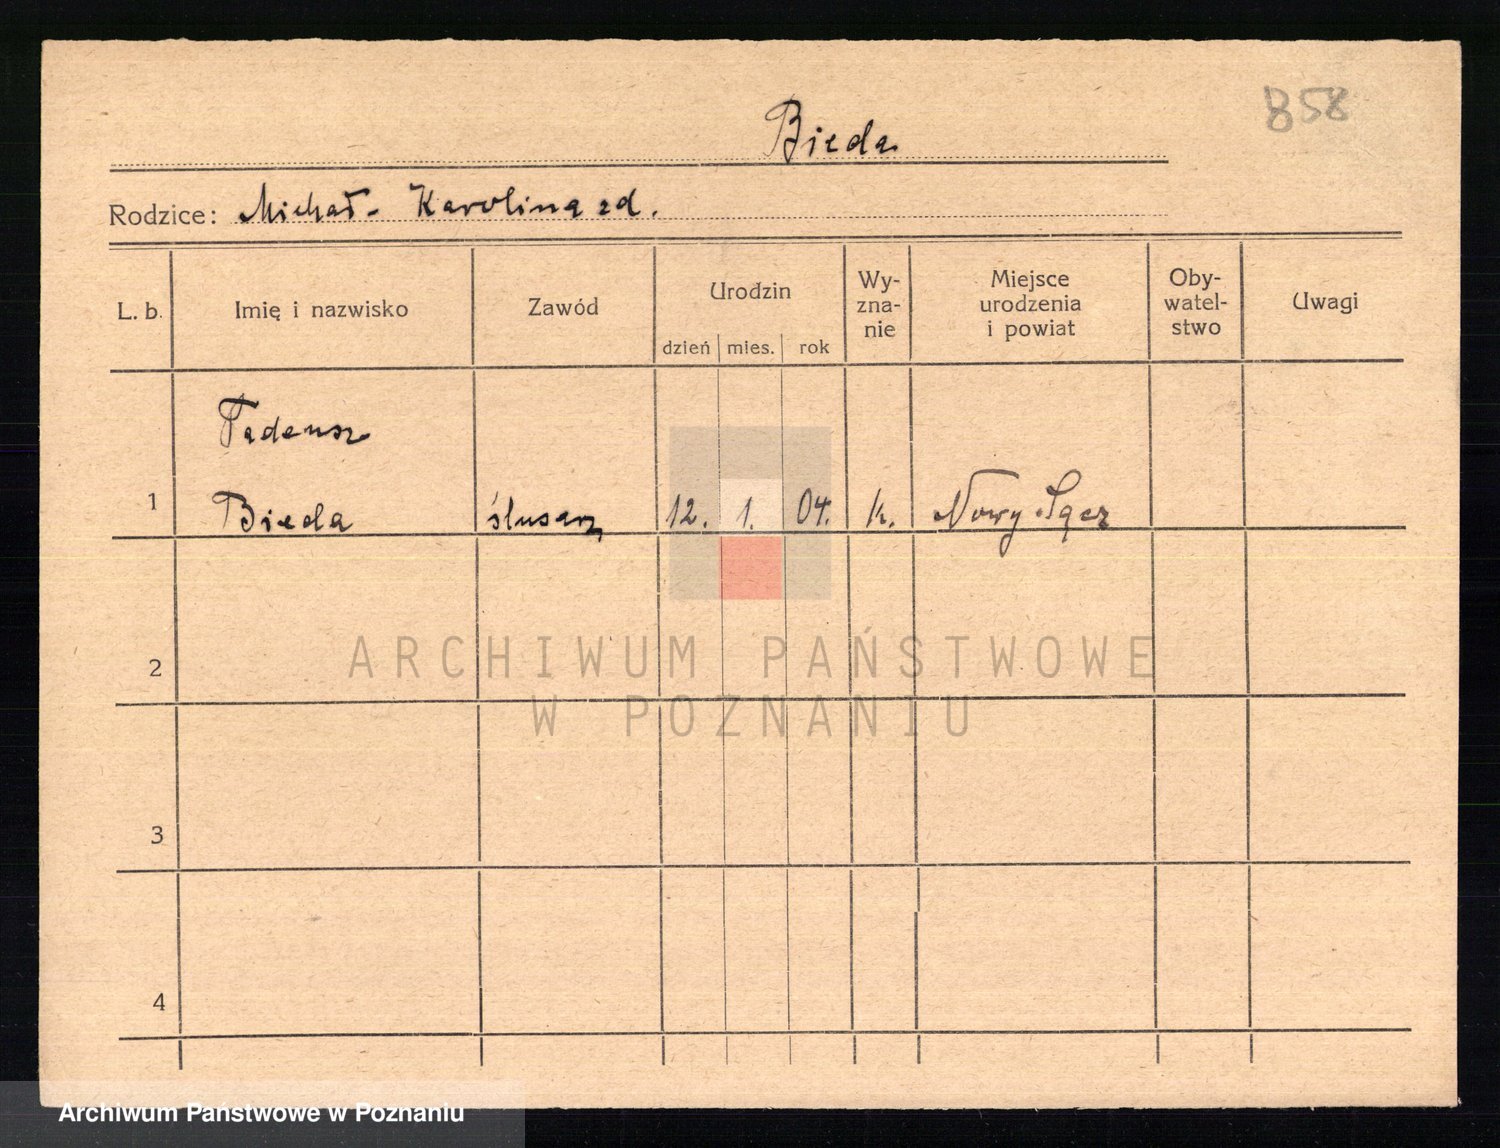 B58
Bieda
Rodzice: Michał - Karolina zd.
L. b. Imię i nazwisko Zawód Urodzin dzień mies. rok Wy-zna-nie Miejsce urodzenia i powiat Oby-watel-stwo Uwagi
Tadeusz
1 Bieda ślusarz 12. 1. 04. k. Nowy Sącz
2
ARCHIWUM PAŃSTWOWE
W POZNANIU
3
4
Archiwum Państwowe w Poznaniu